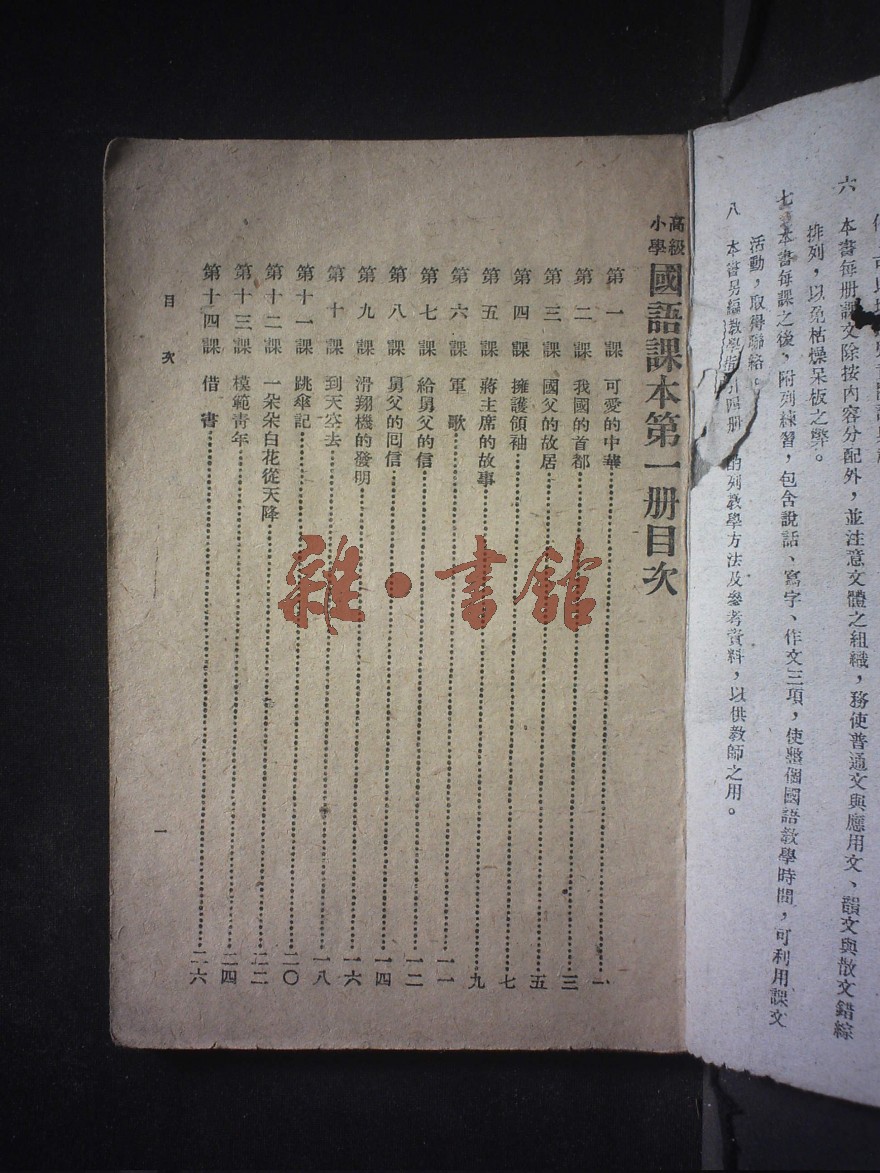 六　本書每册課文除按內容分配外，並注意文體之組織，務使普通文與應用文、韻文與散文錯綜
排列，以免枯燥呆板之弊。
七　本書每課之後，附列練習，包含說話、寫字、作文三項，使整個國語教學時間，可利用課文
活動，取得聯絡。
八　本書另編教學指引四册，　列教學方法及參考資料，以供教師之用。
高級
小學
國語課本第一册目次
第一課　可愛的中華……一
第二課　我國的首都……三
第三課　國父的故居……五
第四課　擁護領袖……七
第五課　蔣主席的故事……九
第六課　軍歌……一一
第七課　給舅父的信……一二
第八課　舅父的回信……一四
第九課　滑翔機的發明……一六
第十課　到天空去……一八
第十一課　跳傘記……二〇
第十二課　一朵朵白花從天降……二二
第十三課　模範青年……二四
第十四課　借書……二六
目次
一
雜·書館